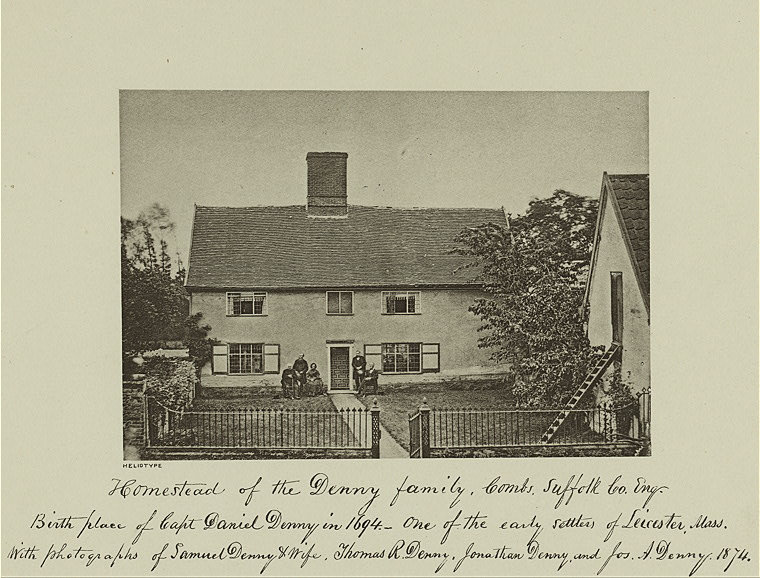 HELIOTYPE
Homestead of the Denny family, Combs, Suffolk Co. Eng.
Birth place of Capt Daniel Denny in 1694.- One of the early settlers of Leicester, Mass.
With photographs of Samuel Denny & Wife, Thomas R. Denny, Jonathan Denny, and Jos. A. Denny. 1874.